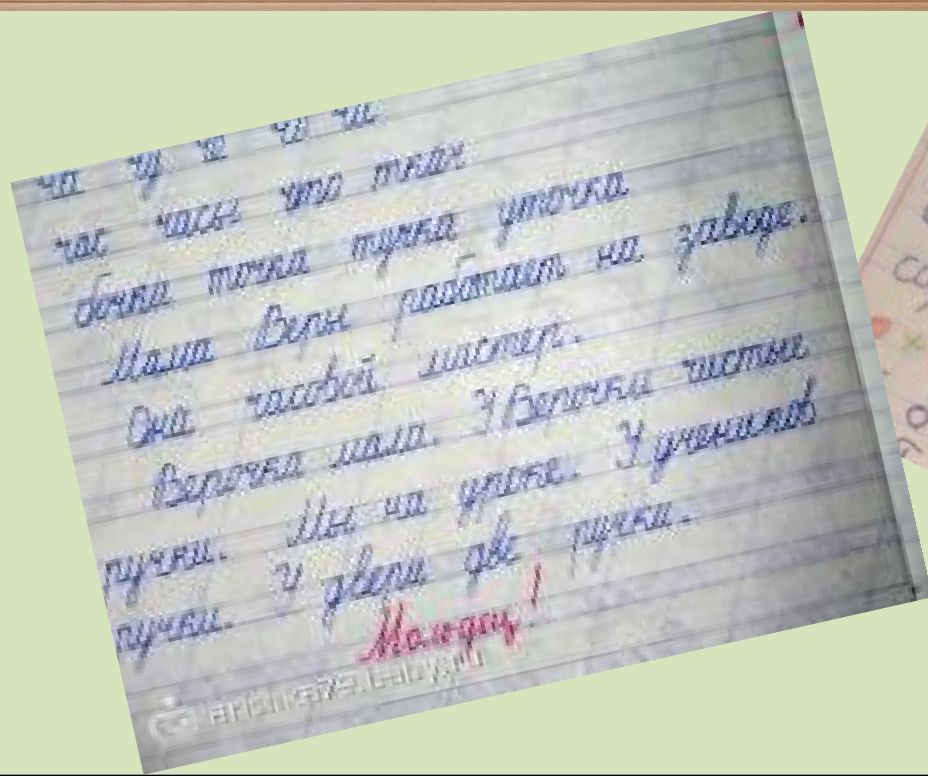 ча чу
час часы это ткач
бочка точка тучка уточка
Мама Веры работает на заводе.
Она часовой мастер.
Верочка мала. У Верочки чистые
ручки. Мы на уроке. У учеников
ручки. У двери две ручки.
Молодец!